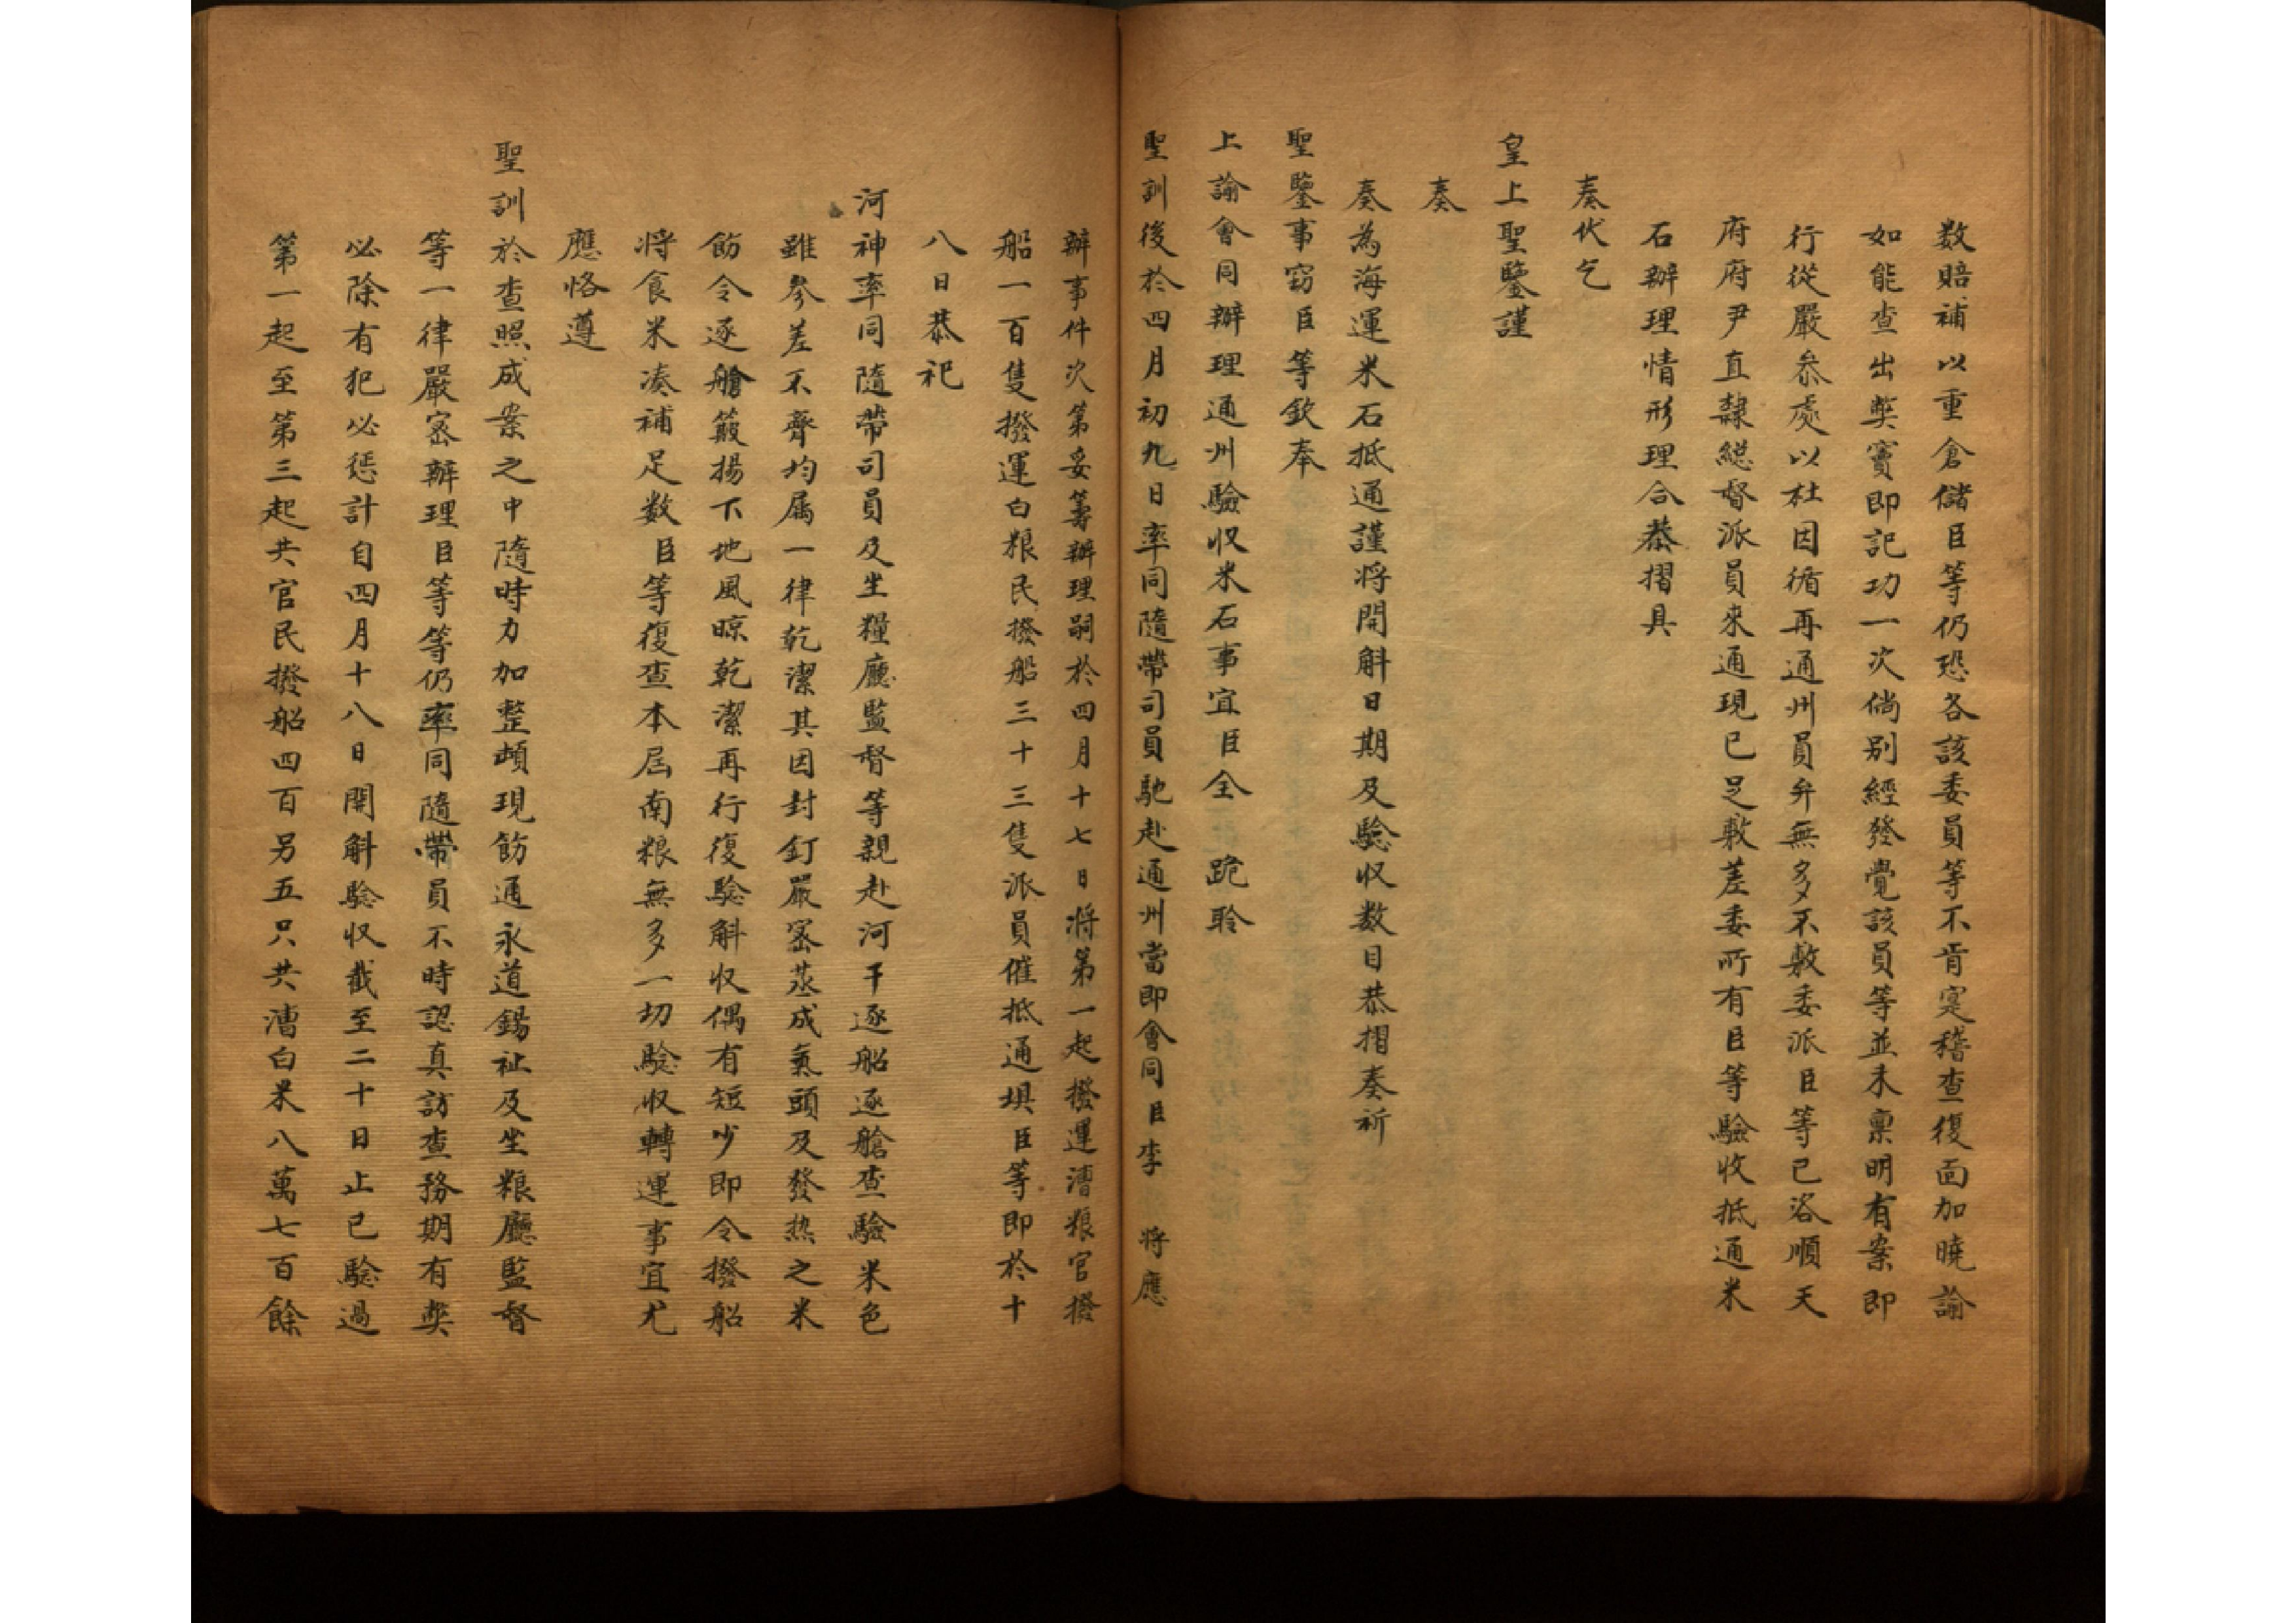 数賠補以重倉儲臣等仍恐各該委員等不肯寔稽查復面加曉諭
如能查出獘竇即記功一次倘别經發覺該員等並未禀明有案即
行從嚴叅處以杜因循再通州員弁無多不敷委派臣等已咨順天
府府尹直隸緫督派員來通現已足敷差委所有臣等驗收抵通米
石辦理情形理合恭摺具
奏伏乞
皇上聖鑒謹
奏
奏為海運米石抵通謹将開斛日期及驗収数目恭摺奏祈
聖鑒事窃臣等欽奉
上諭會同辦理通州驗収米石事宜臣全 跪聆
聖訓後於四月初九日率同隨帶司員馳赴通州當即會同臣李 将應
辦事件次第妥籌辦理嗣於四月十七日将第一起撥運漕粮官撥
船一百隻撥運白粮民撥船三十三隻派員催抵通垻臣等即於十
八日恭祀
河神率同隨帶司員及坐糧廳監督等親赴河干逐船逐艙查驗米色
雖參差不齊均属一律乾潔其因封釘嚴宻蒸成氣頭及發热之米
飭令逐艙簸揚下地風晾乾潔再行復驗斛収偶有短少即令撥船
将食米湊補足数臣等復查本屆南粮無多一切驗収轉運事宜尤
應恪遵
聖訓於查照成案之中隨時力加整頓現飭通永道錫祉及坐粮廳監督
等一律嚴宻辦理臣等等仍率同隨帶員不時認真訪查務期有獘
必除有犯必懲計自四月十八日開斛驗収截至二十日止已驗過
第一起至第三起共官民撥船四百另五只共漕白米八萬七百餘